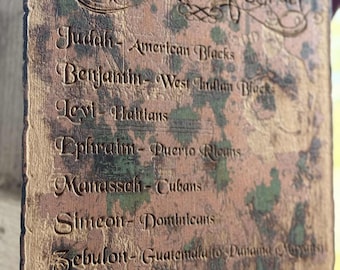 Judah- American Blacks
Benjamin- West Indian Black
Levi- Haitians
Ephraim- Puerto Ricans
Manasseh- Cubans
Simeon- Dominicans
Zebulon- Guatemala to Panama